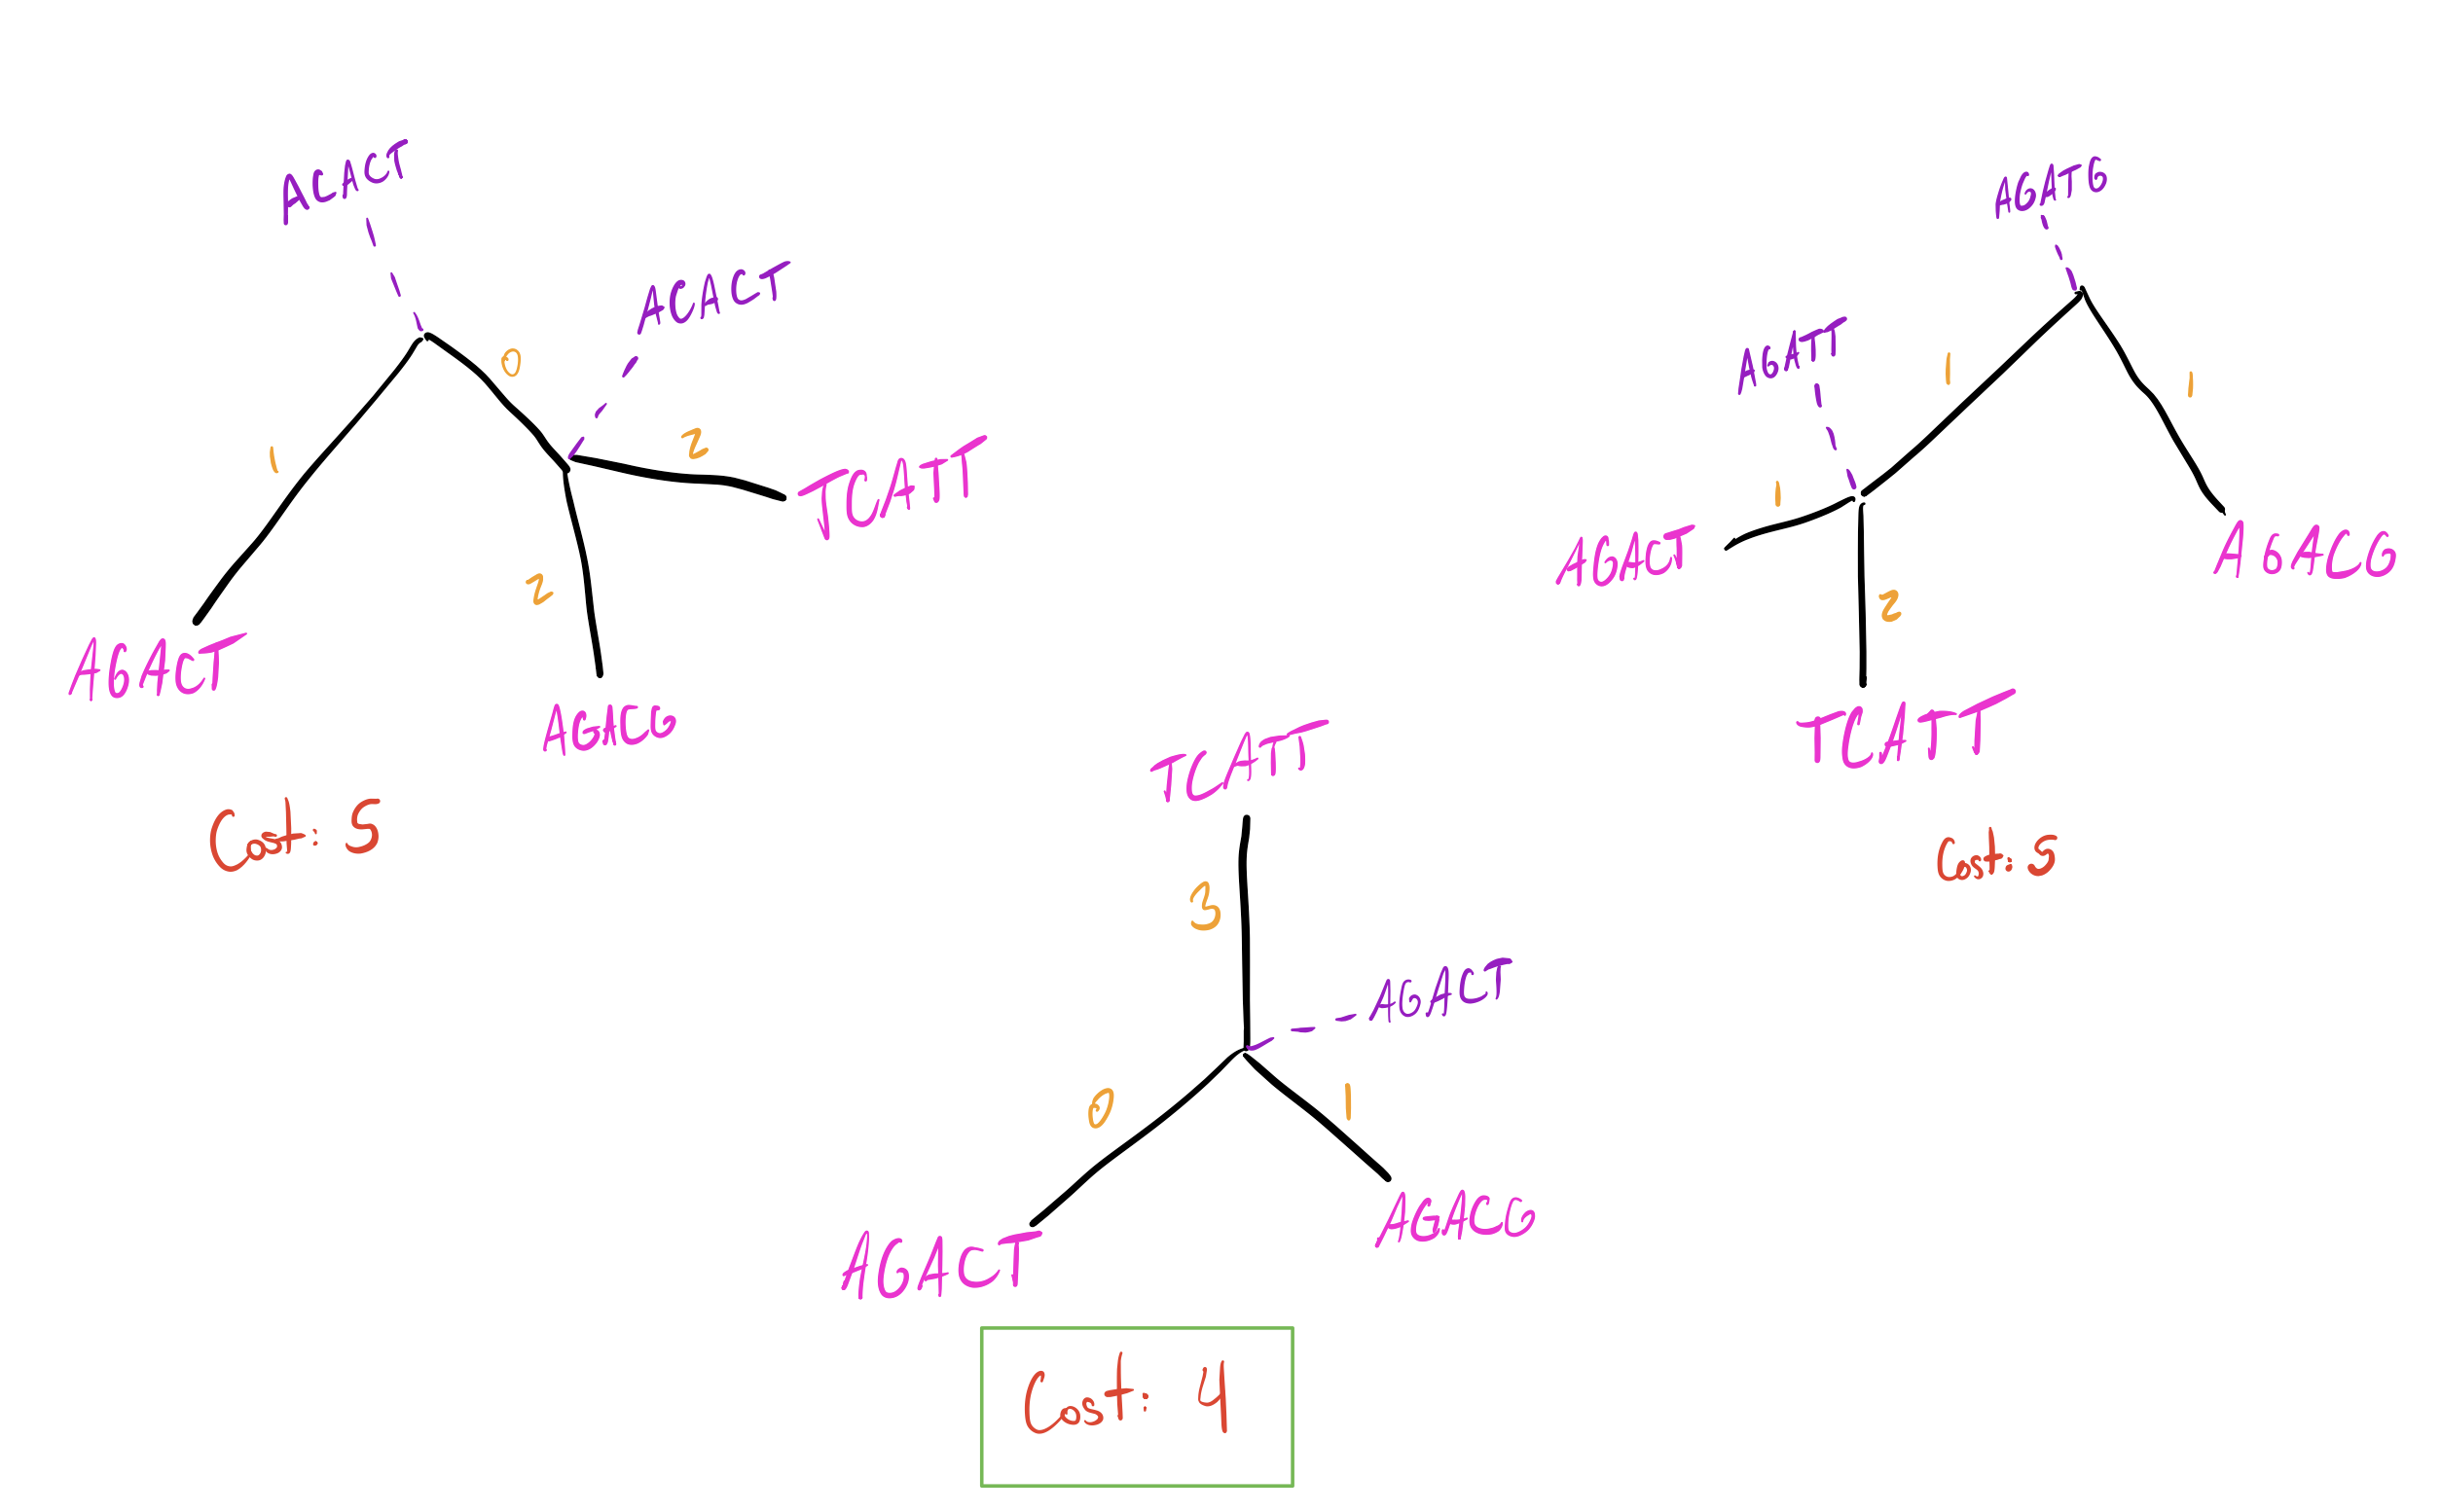 ACACT
0
ACACT
1
2
TCATT
2
AGACT
AGACG
Cost: 5
AGATG
AGATT
1
1
1
AGACT
AGACG
2
TCATT
Cost: 5
TCATT
3
AGACT
0
1
AGACT
AGACG
Cost: 4